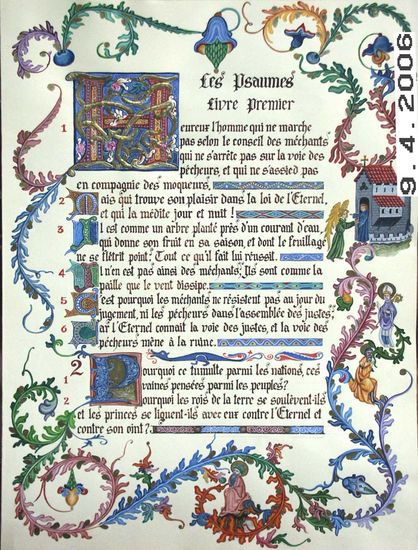 Les Psaumes
Livre Premier
1 Heureux l'homme qui ne marche
pas selon le conseil des méchants
qui ne s'arrête pas sur la voie des
pécheurs, et qui ne s'assied pas
en compagnie des moqueurs,
2 Mais qui trouve son plaisir dans la loi de l'Eternel,
et qui la médite jour et nuit !
3 Il est comme un arbre planté près d'un courant d'eau,
qui donne son fruit en sa saison, et dont le feuillage
ne se flétrit point: Tout ce qu'il fait lui réussit.
4 Il n'en est pas ainsi des méchants: Ils sont comme la
paille que le vent dissipe.
5 C'est pourquoi les méchants ne résistent pas au jour du
jugement, ni les pécheurs dans l'assemblée des justes;
6 Car l'Eternel connaît la voie des justes, et la voie des
pécheurs mène à la ruine.
2
1 Pourquoi ce tumulte parmi les nations, ces
vaines pensées parmi les peuples?
2 Pourquoi les rois de la terre se soulèvent-ils
et les princes se liguent-ils avec eux contre l'Eternel et
contre son oint?
9.4.2006